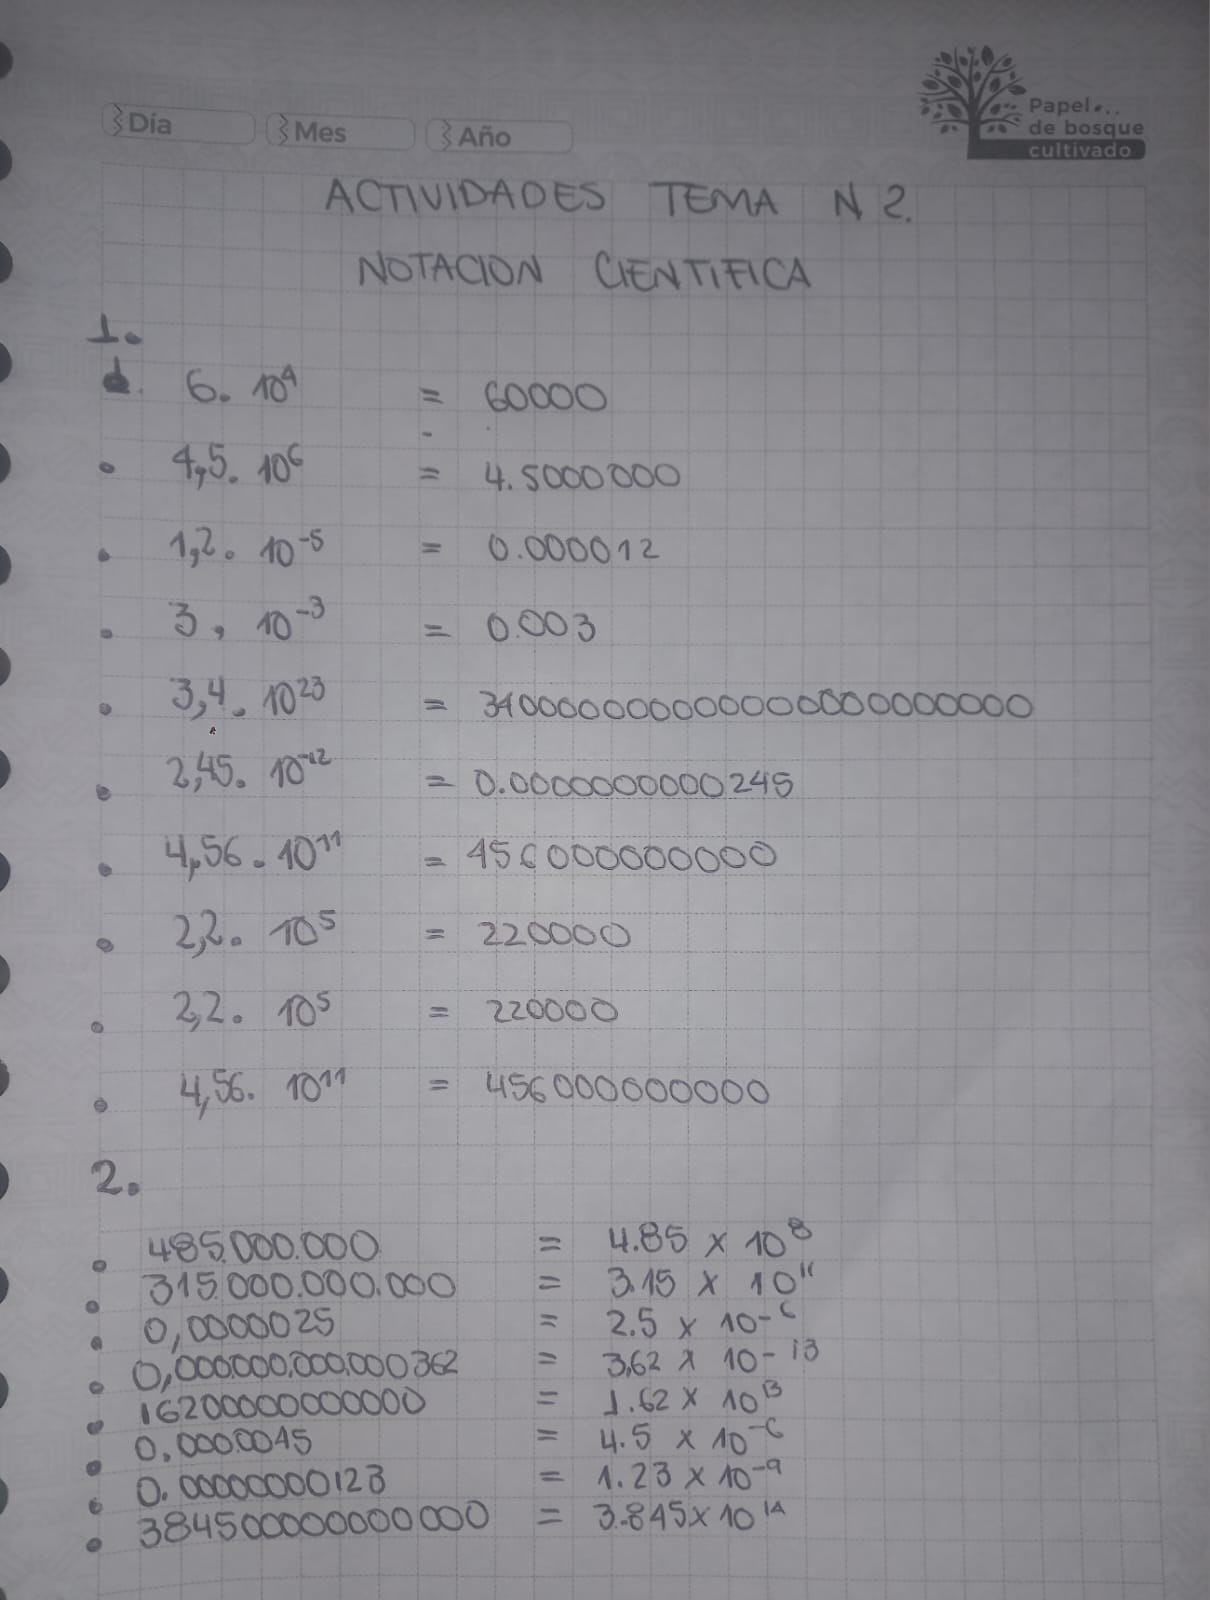 Día Mes Año
Papel...
de bosque
cultivado
ACTIVIDADES TEMA N 2.
NOTACION CIENTIFICA
1.
6. 10⁴ = 60000
• 4,5. 10⁶ = 4.5000000
• 1,2. 10⁻⁵ = 0.000012
• 3, 10⁻³ = 0.003
• 3,4. 10²³ = 340000000000000000000000
• 2,45. 10⁻¹² = 0.0000000000245
• 4,56. 10¹¹ = 456000000000
• 2,2. 10⁵ = 220000
• 2,2. 10⁵ = 220000
• 4,56. 10¹¹ = 456000000000
2.
• 485.000.000 = 4.85 x 10⁸
• 315.000.000.000 = 3.15 x 10¹¹
• 0,0000025 = 2.5 x 10⁻⁶
• 0,000.000.000.000362 = 3,62 x 10⁻¹³
• 16200000000000 = 1.62 x 10¹³
• 0.0000045 = 4.5 x 10⁻⁶
• 0.00000000123 = 1.23 x 10⁻⁹
• 384500000000000 = 3.845 x 10¹⁴